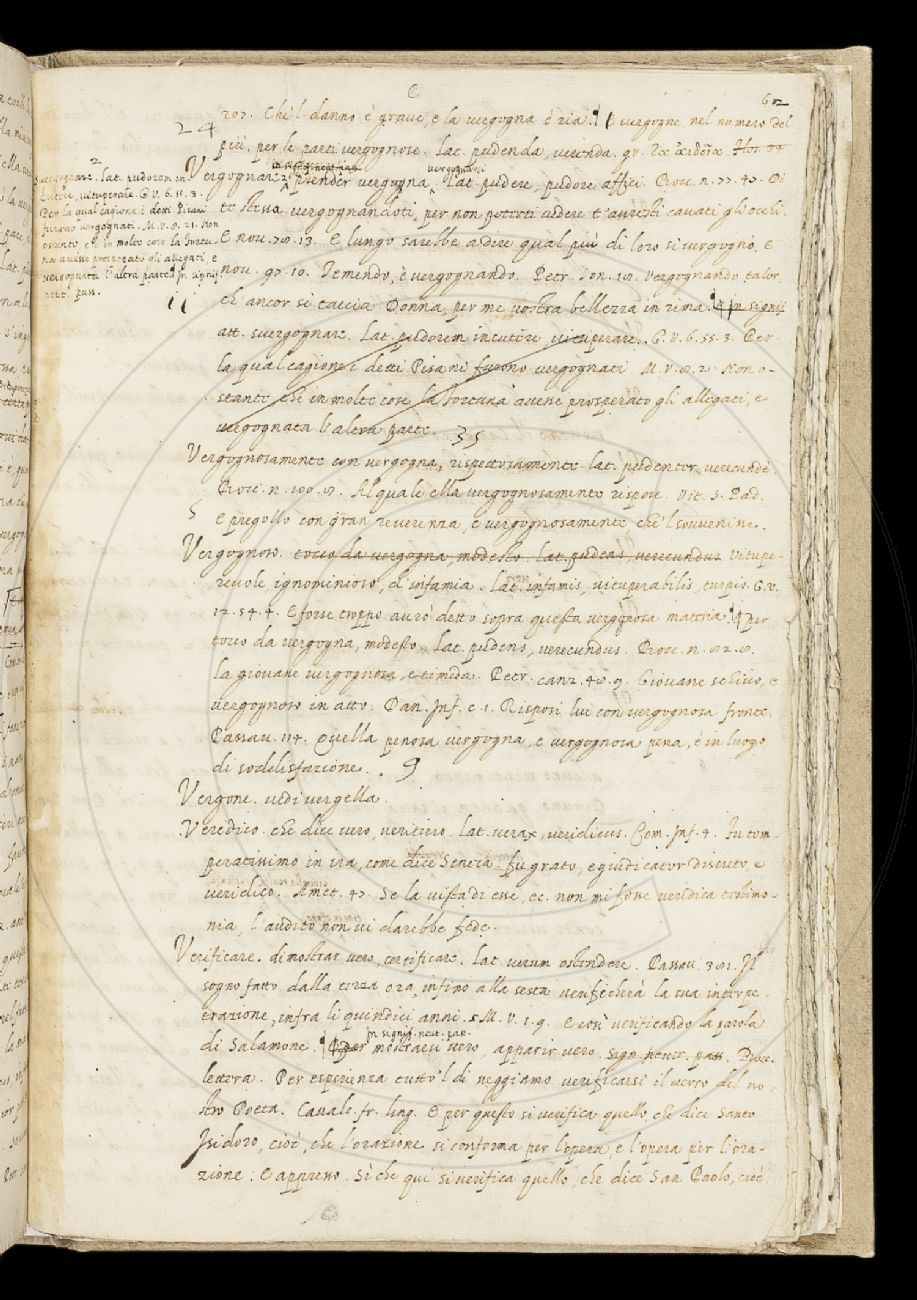 E
602
207. Che'l danno è grave, e la vergogna è ria. E vergogne nel numero del
24
più, per le parti vergognose. Lat. pudenda, verenda. gr.
vergognarsi
Vergognare. prender vergogna. Lat. pudere, pudore affici. Bocc. n. 77. 47. Di
te stessa vergognandoti, per non poterti vedere t'avresti cavati gli occhi.
E nov. 79. 13. E lungo sarebbe a dire qual più di loro si vergognò, e
nov. 97. 10. Temendo, e vergognando. Petr. son. 18. Vergognando talor
ch'ancor si taccia Donna, per me vostra bellezza in rima. In signif.
att. svergognare. Lat. pudorem incutere vituperare. G. V. 6. 55. 3. Per
la qual cagione i detti Pisani furono vergognati. M. V. 8. 21. Non o-
stante che in molte cose la fortuna avesse prosperato gli allegati, e
vergognata l'altra parte.
35
2
Svergognare. Lat. pudorem in
cutere, vituperare. G. V. 6. 55. 3.
Per la qual cagione i detti Pisani
furono vergognati. M. V. 8. 21. Non
ostante che in molte cose la fortu-
na avesse prosperato gli allegati e
vergognata l'altra parte. In signif.
neut. pass.
11
Vergognosamente con vergogna, rispettosamente. lat. pudenter, verecunde
Bocc. n. 100. 8. Al quale ella vergognosamente rispose. Vit. S. Pad.
5
e pregollo con gran reverenza, e vergognosamente che'l sovvenisse.
Vergognoso. tocco da vergogna, modesto. lat. pudens, verecundus. Vitupe-
revole, ignominioso, d'infamia. Lat. infamis, vituperabilis, turpis. G. V.
12. 54. 4. E forse troppo avrò detto sopra questa vergognosa matteria. per
tocco da vergogna, modesto. Lat. pudens, verecundus. Bocc. n. 82. 8.
La giovane vergognosa, e timida. Petr. canz. 48. 9. Giovane schivo, e
vergognoso in atto. Dan. Inf. c. 1. Risposi lui con vergognosa fronte.
Passav. 114. Quella penosa vergogna, e vergognosa pena, è in luogo
di soddisfazione.
9
Vergone. vedi vergella.
Veridico. che dice vero, veritiero. Lat. verax, veridicus. Com. Inf. 4. Fu tem-
peratissimo in ira, come dice Seneca. fu grato, e giudicator discreto, e
veridico. Amet. 47. Se la vista di esse, ec. non mi fosse veridica testimo-
nia, l'audito non vi darebbe fede.
Verificare. dimostrar vero, certificare. Lat. verum ostendere. Passav. 381. Il
sogno fatto dalla terza ora, infino alla sesta verificherà la sua interpe-
trazione, infra li quindici anni. M. V. 1. 9. E così verificando la parola
In signif. neut. pas.
di Salamone. Per mostrarsi vero, apparir vero. sign. neutr. pass. Bocc.
lettera. Per esperienza tutto'l dì veggiamo verificarsi il verso del no-
stro Poeta. Cavalc. fr. ling. E per questo si verifica quello, che dice Santo
Isidoro, cioè, che l'orazione si conforma per l'opera, e l'opera per l'ora-
zione: E appresso. Sì che qui si verifica quello, che dice San Paolo, cioè